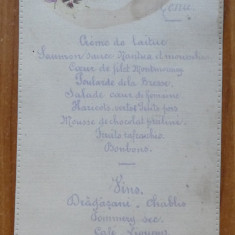 Menu
Crème de laitue
Saumon sauce Nantua et mousseline
Coeur de filet Montmorency
Poularde de la Bresse
Salade coeur de romaine
Haricots verts petits pois
Mousse de chocolat pralinée
Fruits refraichis
Bonbons.
Vins.
Drăgășani - Chablis
Pommery sec.
Café Liqueurs